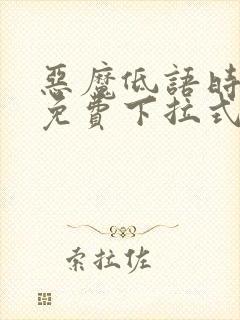 惡魔低語時
免費下拉式
索拉佐